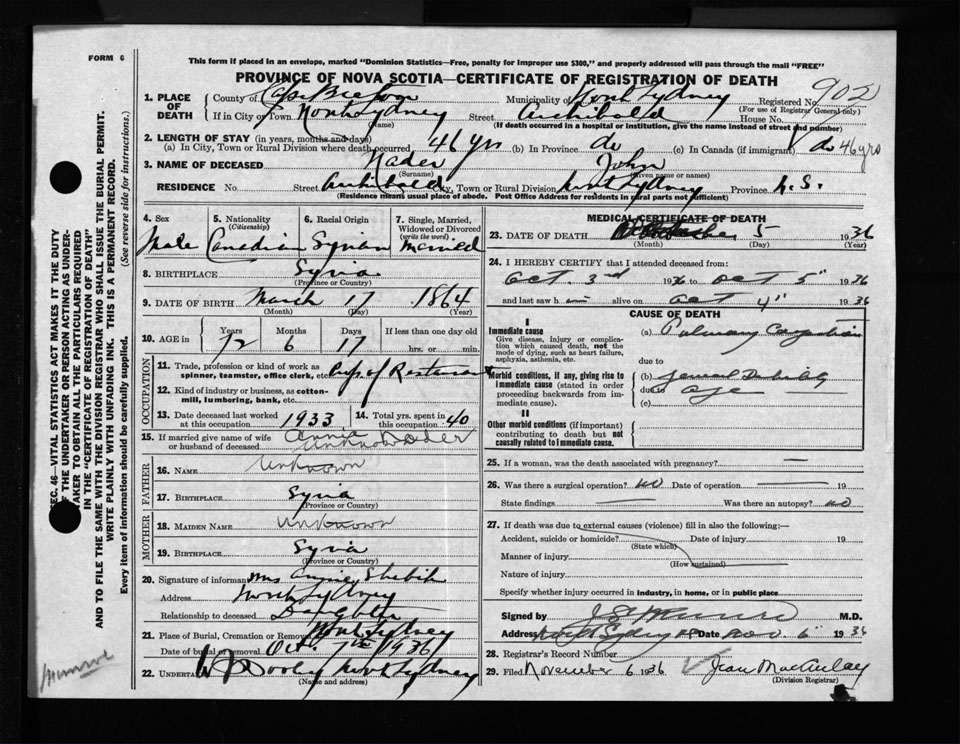 FORM 6
This form if placed in an envelope, marked "Dominion Statistics—Free, penalty for improper use $300," and properly addressed will pass through the mail "FREE"
PROVINCE OF NOVA SCOTIA—CERTIFICATE OF REGISTRATION OF DEATH
902
1. PLACE OF DEATH
County of Cape Breton Municipality of North Sydney Registered No.
(For use of Registrar General only)
If in City or Town North Sydney Street Archibald House No.
(name) (If death occurred in a hospital or institution, give the name instead of street and number)
2. LENGTH OF STAY (in years, months and days)
(a) In City, Town or Rural Division where death occurred 46 yrs (b) In Province do (c) In Canada (if immigrant) do 46 yrs
3. NAME OF DECEASED Nader John
(Surname) (Given name or names)
RESIDENCE No. Street Archibald City, Town or Rural Division North Sydney Province N.S.
(Residence means usual place of abode. Post Office Address for residents in rural parts not sufficient)
4. Sex
Male
5. Nationality
(Citizenship)
Canadian
6. Racial Origin
Syrian
7. Single, Married, Widowed or Divorced
(write the word)
Married
8. BIRTHPLACE Syria
(Province or Country)
9. DATE OF BIRTH March 17 1864
(Month) (Day) (Year)
10. AGE in
Years Months Days If less than one day old
72 6 17 hrs. or min.
OCCUPATION
11. Trade, profession or kind of work as spinner, teamster, office clerk, etc. of Restaurant
12. Kind of industry or business, as cotton-mill, lumbering, bank, etc.
13. Date deceased last worked at this occupation 1933
14. Total yrs. spent in this occupation 40
15. If married give name of wife or husband of deceased Annie Nader
FATHER
16. NAME Unknown
17. BIRTHPLACE Syria
(Province or Country)
MOTHER
18. MAIDEN NAME Unknown
19. BIRTHPLACE Syria
(Province or Country)
20. Signature of informant Mrs Annie Shebib
Address North Sydney
Relationship to deceased Daughter
21. Place of Burial, Cremation or Removal North Sydney
Date of burial or removal Oct. 7th 1936
22. UNDERTAKER W J Dooley North Sydney
(Name and address)
MEDICAL CERTIFICATE OF DEATH
23. DATE OF DEATH 5 1936
(Month) (Day) (Year)
24. I HEREBY CERTIFY that I attended deceased from:
Oct. 3rd 1936 to Oct 5" 1936
and last saw him alive on Oct 4" 1936
CAUSE OF DEATH
I
Immediate cause
Give disease, injury or complication which caused death, not the mode of dying, such as heart failure, asphyxia, asthenia, etc.
(a) Pulmonary Congestion
due to
Morbid conditions, if any, giving rise to immediate cause (stated in order proceeding backwards from immediate cause).
(b) General Debility
due to age
(c)
II
Other morbid conditions (if important) contributing to death but not causally related to immediate cause.
25. If a woman, was the death associated with pregnancy? —
26. Was there a surgical operation? no Date of operation — 19
State findings — Was there an autopsy? no
27. If death was due to external causes (violence) fill in also the following:—
Accident, suicide or homicide? Date of injury 19
(State which)
Manner of injury
(How sustained)
Nature of injury
Specify whether injury occurred in industry, in home, or in public place
Signed by M.D.
Address North Sydney NS Date Nov. 6" 1936
28. Registrar's Record Number
29. Filed November 6 1936 Jean MacAulay
(Division Registrar)
SEC. 46—VITAL STATISTICS ACT MAKES IT THE DUTY
OF THE UNDERTAKER OR PERSON ACTING AS UNDERTAKER TO OBTAIN ALL THE PARTICULARS REQUIRED
IN THE "CERTIFICATE OF REGISTRATION OF DEATH"
AND TO FILE THE SAME WITH THE DIVISION REGISTRAR WHO SHALL ISSUE THE BURIAL PERMIT.
WRITE PLAINLY WITH UNFADING INK. THIS IS A PERMANENT RECORD.
Every item of information should be carefully supplied. (See reverse side for instructions.)